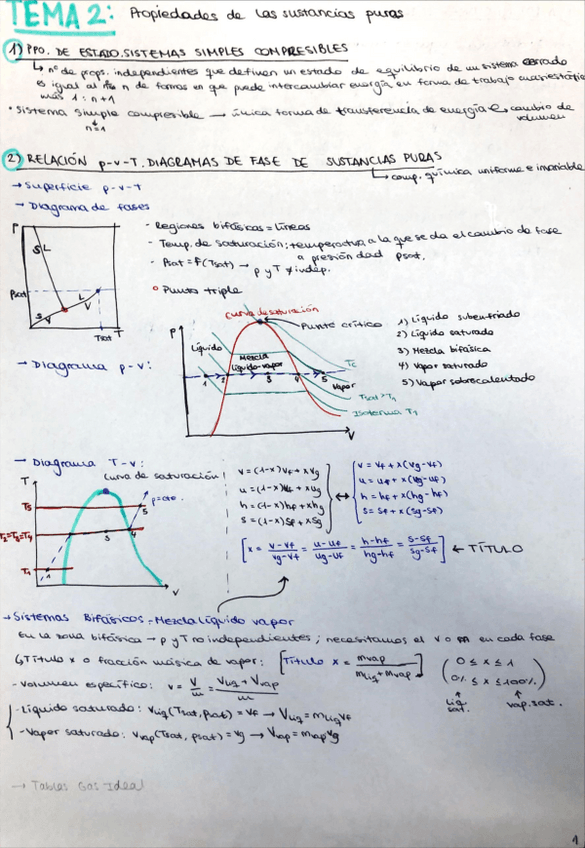 TEMA 2: Propiedades de las sustancias puras
1) PPO. DE ESTADO. SISTEMAS SIMPLES COMPRESIBLES
↳ nº de props. independientes que definen un estado de equilibrio de un sistema cerrado
es igual al nº n de formas en que puede intercambiar energía en forma de trabajo cuasiestático
más 1: n+1
• Sistema simple compresible → única forma de transferencia de energía es cambio de
n=1
volumen
2) RELACIÓN p-v-T. DIAGRAMAS DE FASE DE SUSTANCIAS PURAS
↳ comp. química uniforme e invariable
→ Superficie p-v-T
→ Diagrama de fases
- Regiones bifásicas = líneas
- Temp. de saturación: temperatura a la que se da el cambio de fase
a presión dad psat.
- Psat = f(Tsat) → p y T ≠ indep.
o Punto triple
P
S L
Psat
L
V
S
V
Tsat
T
→ Diagrama p-v:
P
Curva de saturación
Punto crítico
Líquido
Mezcla
líquido-vapor
1 2 3 4 5
Vapor
Tc
Tsat > T1
Isoterma T1
V
1) Líquido subenfriado
2) Líquido saturado
3) Mezcla bifásica
4) Vapor saturado
5) Vapor sobrecalentado
→ Diagrama T-v:
Curva de saturación
T
T5
T2=T3=T4
T1
1
3
4
5
p=cte.
v
v = (1-x)vf + xvg
u = (1-x)uf + xug
h = (1-x)hf + xhg
s = (1-x)sf + xsg
↔
v = vf + x(vg-vf)
u = uf + x(ug-uf)
h = hf + x(hg-hf)
s = sf + x(sg-sf)
[x = v-vf/vg-vf = u-uf/ug-uf = h-hf/hg-hf = s-sf/sg-sf] ← TÍTULO
→ Sistemas Bifásicos - Mezcla líquido vapor
En la zona bifásica → p y T no independientes; necesitamos el v o m en cada fase
↳ Título x o fracción másica de vapor: [Título x = mvap/mliq + mvap] (0 ≤ x ≤ 1
0% ≤ x ≤ 100%)
↑ liq. sat. ↑ vap. sat.
- Volumen específico: v = V/m = Vliq + Vvap/m
- Líquido saturado: vliq(Tsat, psat) = vf → Vliq = mliq vf
- Vapor saturado: vvap(Tsat, psat) = vg → Vvap = mvap vg
→ Tablas Gas Ideal
1